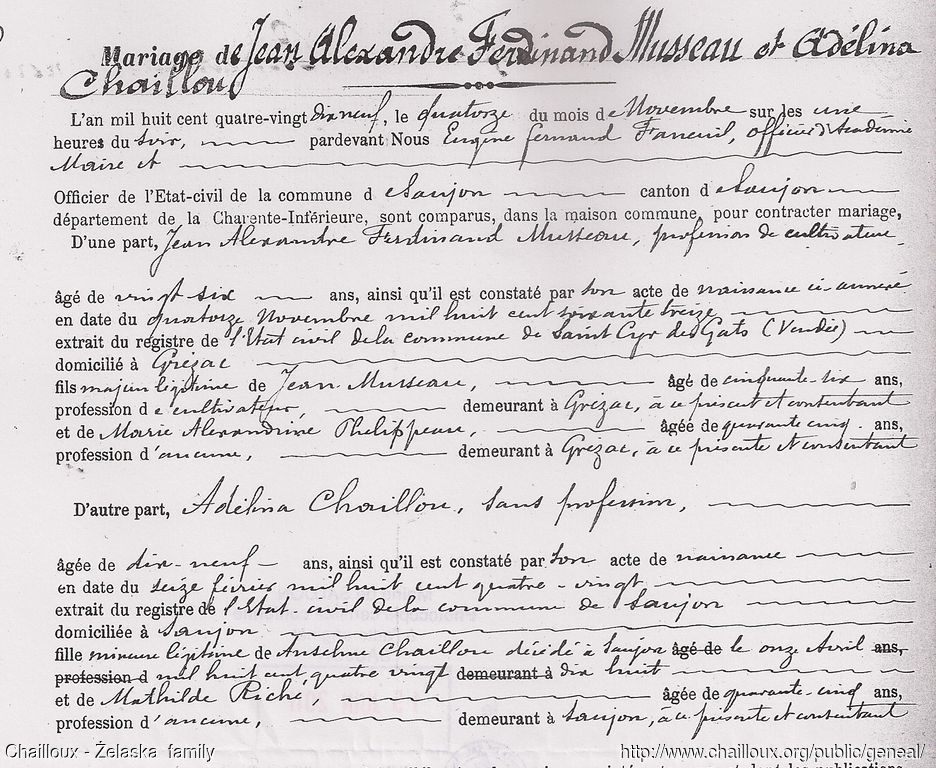 Mariage de Jean Alexandre Ferdinand Musseau et Adélina
Chaillou
L'an mil huit cent quatre-vingt dix neuf, le quatorze du mois de Novembre sur les une
heures du soir, pardevant Nous Eugène Fernand Faneuil, officier d'Académie
Maire et
Officier de l'Etat-civil de la commune d e Saujon canton d e Saujon
département de la Charente-Inférieure, sont comparus, dans la maison commune, pour contracter mariage,
D'une part, Jean Alexandre Ferdinand Musseau, profession de cultivateur,
âgé de vingt six ans, ainsi qu'il est constaté par son acte de naissance ci-annexé
en date du quatorze Novembre mil huit cent soixante treize
extrait du registre de l'Etat civil de la commune de Saint Cyr des Gats (Vendée)
domicilié à Grézac
fils majeur légitime de Jean Musseau, âgé de cinquante-six ans,
profession d e cultivateur, demeurant à Grézac, à ce présent et consentant
et de Marie Alexandrine Phelippeau, âgée de quarante cinq ans,
profession d'aucune, demeurant à Grézac, à ce présente et consentant
D'autre part, Adélina Chaillou, sans profession,
âgée de dix-neuf ans, ainsi qu'il est constaté par son acte de naissance
en date du seize février mil huit cent quatre-vingt
extrait du registre de l'Etat-civil de la commune de Saujon
domiciliée à Saujon
fille mineure légitime de Anselme Chaillou décédé à Saujon âgé de le onze Avril ans,
profession d mil huit cent quatre vingt demeurant à dix huit
et de Mathilde Riché, âgée de quarante-cinq ans,
profession d'aucune, demeurant à Saujon, à ce présente et consentant
Chailloux - Żelaska family http://www.chailloux.org/public/geneal/